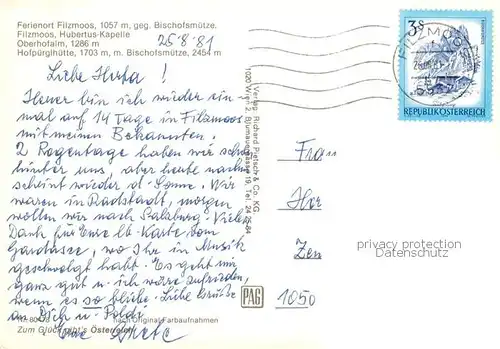 Ferienort Filzmoos, 1057 m, geg. Bischofsmütze.
Filzmoos, Hubertus-Kapelle
Oberhofalm, 1286 m
Hofpürglhütte, 1703 m, m. Bischofsmütze, 2454 m
25 8 81
Liebe Huta !
Heuer bin ich wieder ein
mal auf 14 Tage in Filzmoos
mit meinen Bekannten.
2 Regentage haben wir schon
hinter uns, aber heute nach
scheint wieder d. Sonne. Wir
waren in Radstadt, morgen
wollen wir nach Salzburg. Vielen
Dank für Eure lb. Karte vom
Gardasee, wo Ihr in Musik
geschwelgt habt. Es geht mir
ganz gut u. ich wäre zufrieden,
wenn es so bliebe. Liebe Grüße
an Dich u. Poldi
Eure
nach Original-Farbaufnahmen
Zum Glück gibt's Österreich
Verlag: Richard Pietsch & Co. KG.
1020 Wien 2
PAG
3 S
FILZMOOS
REPUBLIK ÖSTERREICH
Frau
Zen
1050
privacy protection
Datenschutz